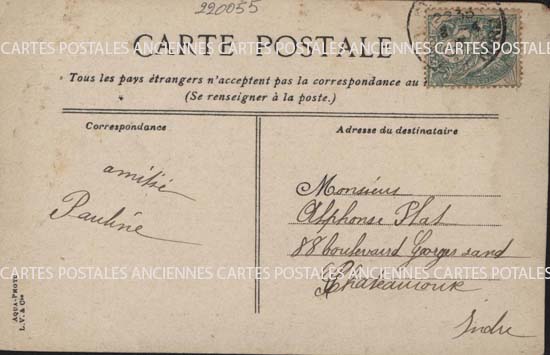 220055
CARTE POSTALE
Tous les pays étrangers n'acceptent pas la correspondance au
(Se renseigner à la poste.)
Correspondance
Adresse du destinataire
amitié
Pauline
Monsieur
Alphonse Plat
88 boulevard Georges sand
Chateauroux
Indre
CARTES POSTALES ANCIENNES CARTES POSTALES ANCIENNES CARTES POSTALES
CARTES POSTALES ANCIENNES CARTES POSTALES ANCIENNES CARTES POSTALES
AQUA-PHOTO
L. V. & Cie